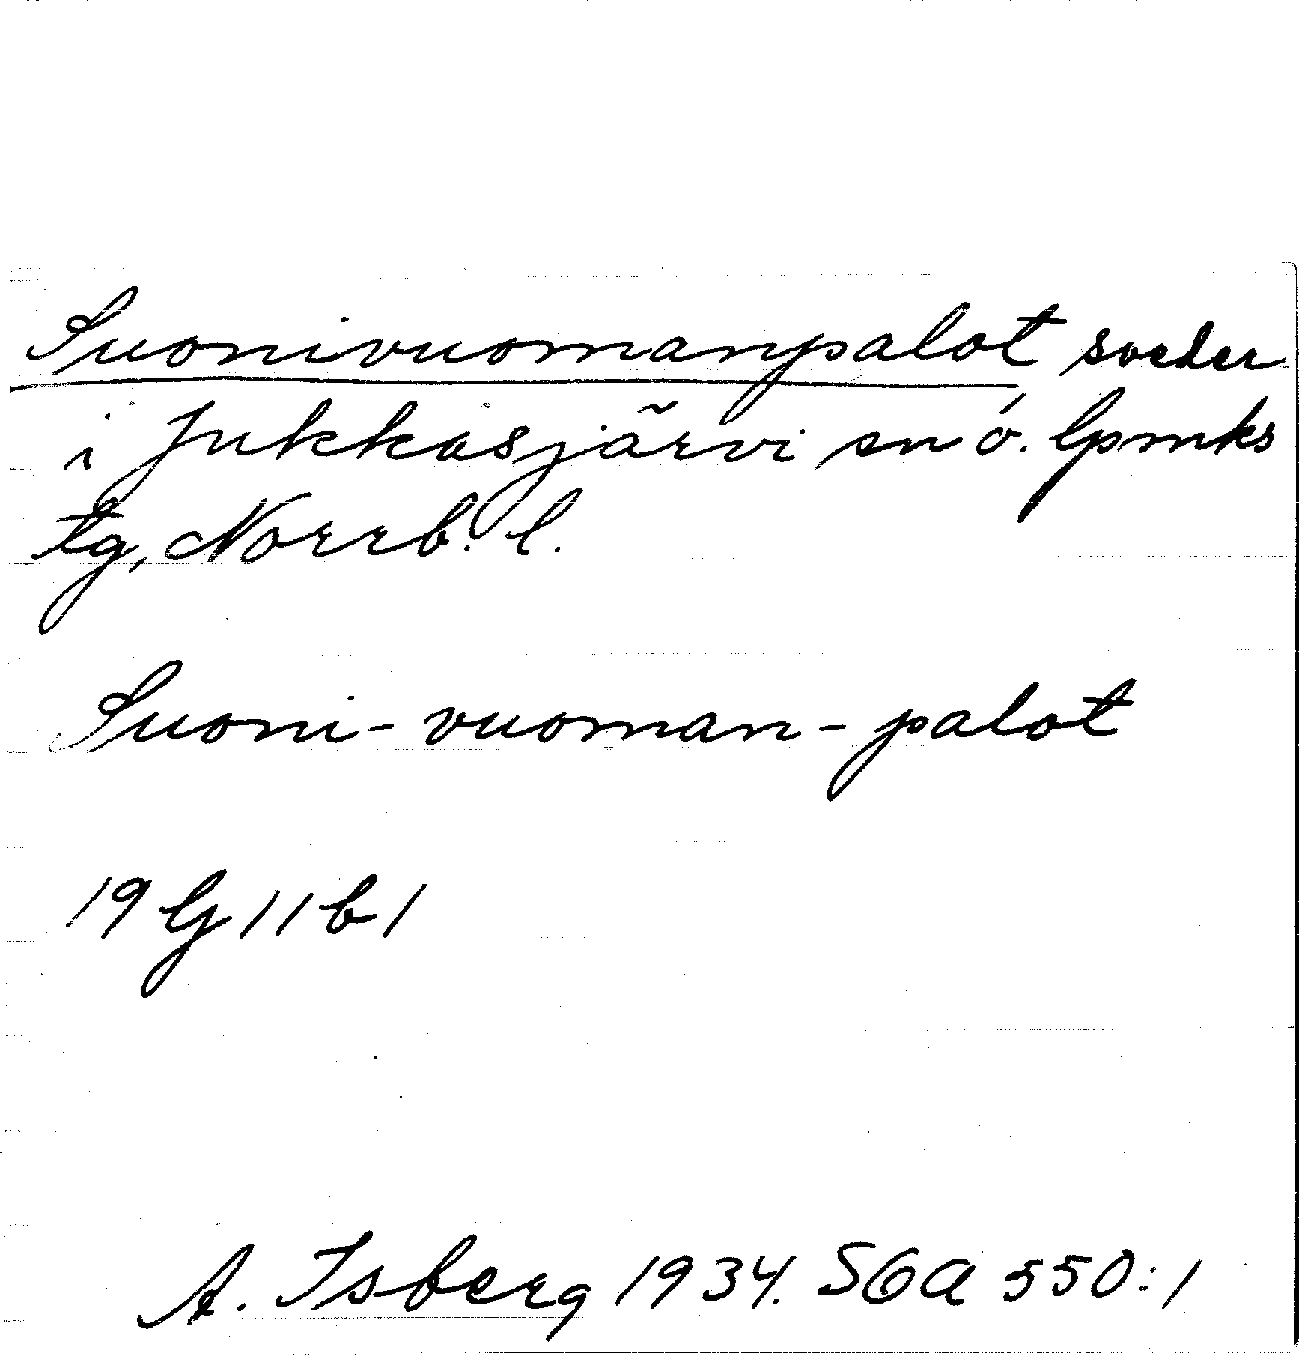 Suonivuomanpalot sveder
i Jukkasjärvi sn ö. lpmks
tg, Norrb. l.
Suoni-vuoman-palot
19 G 11 b 1
A. Isberg 1934. SGA 550:1